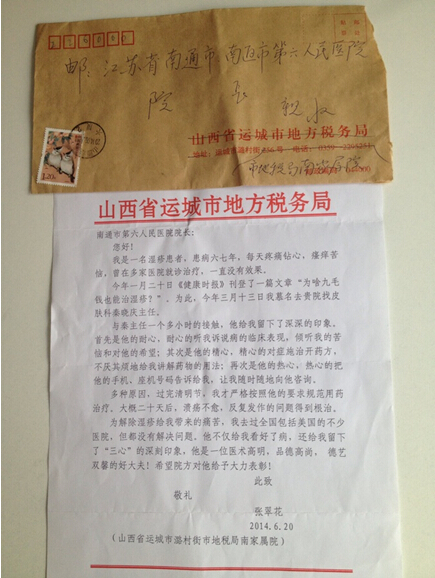 邮:江苏省南通市南通市第六人民医院
院 长 亲收
山西省运城市地方税务局
1.20元
山西省运城市地方税务局
南通市第六人民医院院长:
您好!
我是一名湿疹患者,患病六七年,每天疼痛钻心,瘙痒苦
恼,曾在多家医院就诊治疗,一直没有效果。
今年一月二十日《健康时报》刊登了一篇文章“为啥九毛
钱也能治湿疹?”。为此,今年三月十三日我慕名去贵院找皮
肤科秦晓庆主任。
与秦主任一个多小时的接触,他给我留下了深深的印象。
首先是他的耐心,耐心的听我诉说病的临床表现,倾听我的苦
恼和对他的希望;其次是他的精心,精心的对症施治开药方,
不厌其烦地给我讲解药物的用法;再次是他的热心,热心的把
他的手机、座机号码告诉给我,让我随时随地向他咨询。
多种原因,过完清明节,我才严格按照他的要求规范用药
治疗。大概二十天后,溃疡不愈,反复发作的问题得到根治。
为解除湿疹给我带来的痛苦,我去过全国包括美国的不少
医院,但都没有解决问题,他不仅给我看好了病,还给我留下
了“三心”的深刻印象,他是一位医术高明,品德高尚,德艺
双馨的好大夫!希望院方对他给予大力表彰!
此致
敬礼
张翠花
2014.6.20
(山西省运城市潞村街市地税局南家属院)